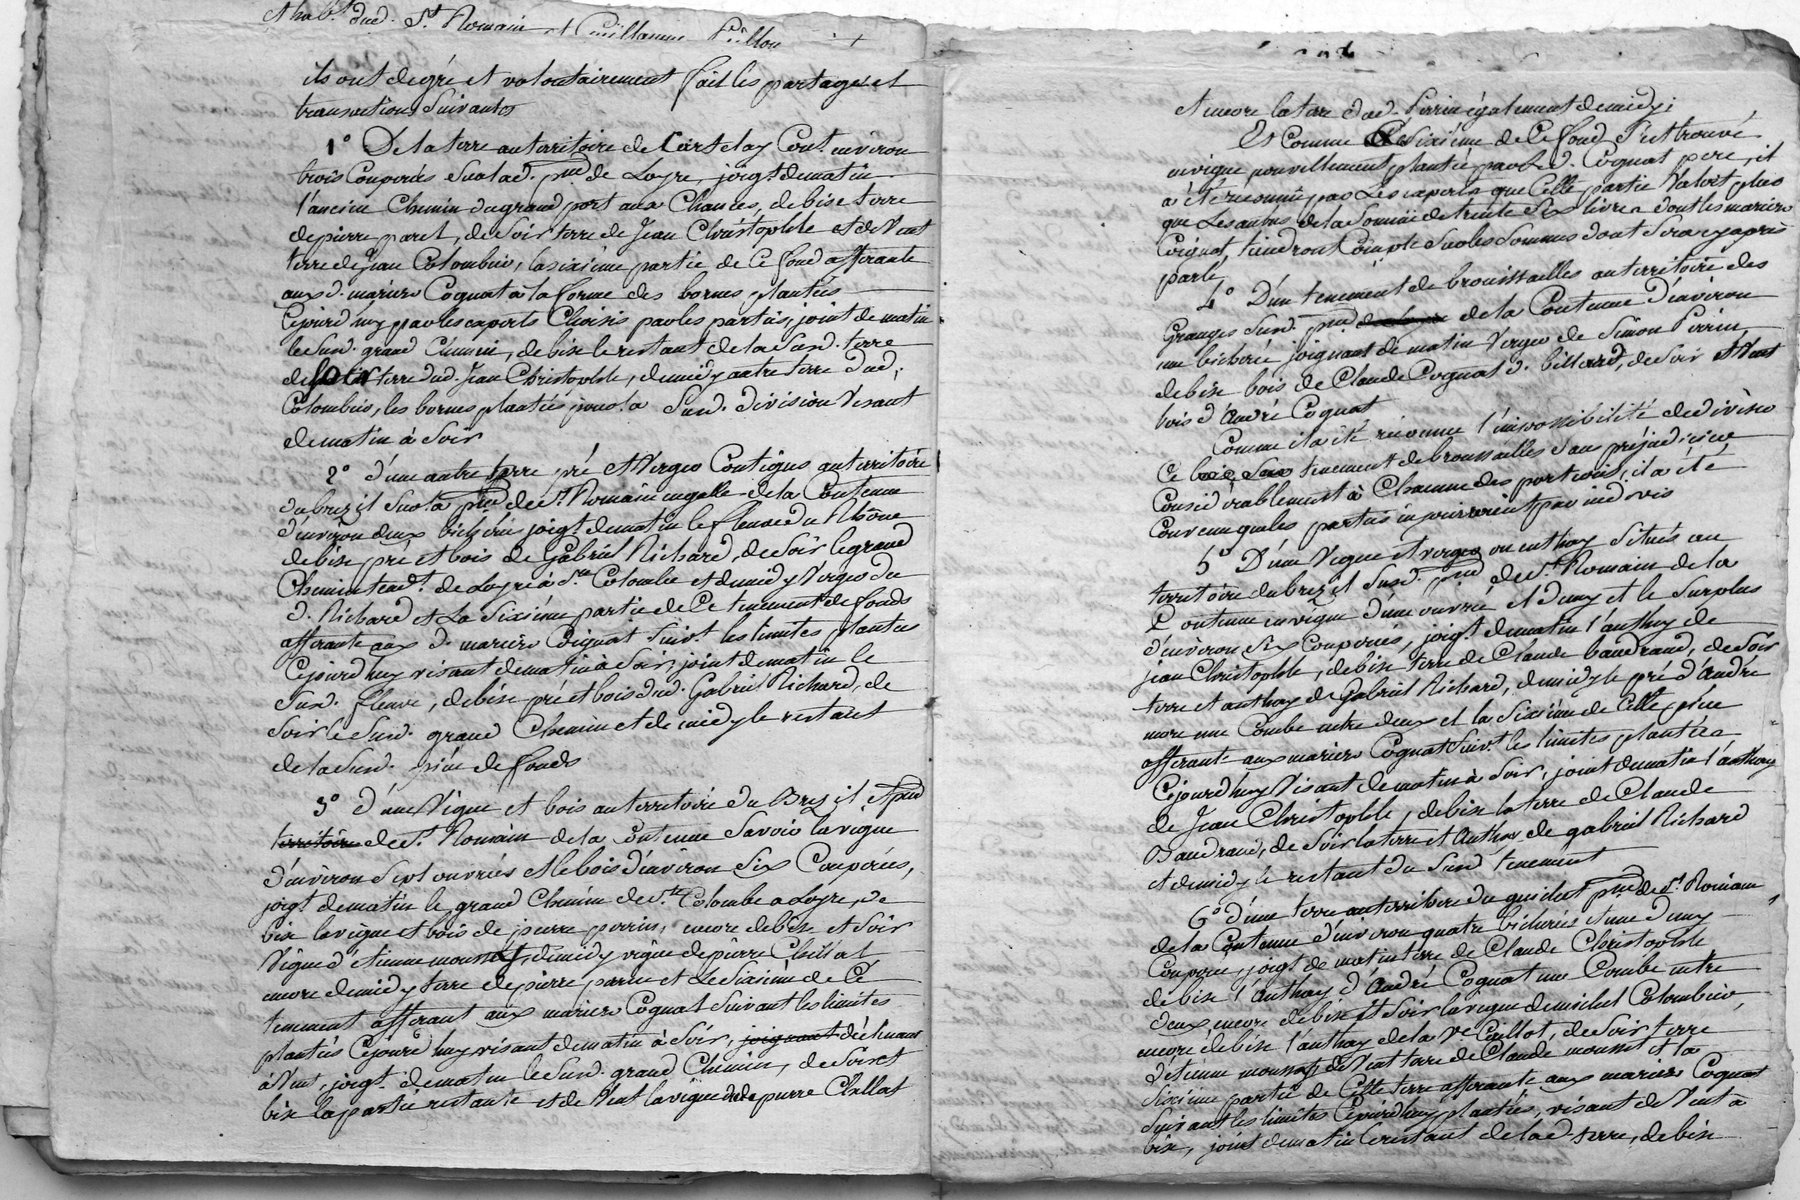 et hab.t dud. St Romain et Guillaume
ils ont de gré et volontairement fait les partage et
transactions suivantes
1° De la terre au territoire de Cont. environ
trois Couporées sur lad. de Loyre, joig.t de matin
l'ancien Chemin du grand port aux Chanées, de bise terre
de pierre paret, de soir terre de Jean Christophle et de Vent
terre de Jean Colombier, la sixième partie de Ce fond afférante
aux d. mariés Cognat à la forme des bornes plantées
Cejourd'huy par les experts Choisis par les parties, joint de matin
le Susd. grand Chemin, de bise le restant de la Susd. terre
de Soir terre dud. Jean Christophle, de midy autre terre dud.
Colombier, les bornes plantées pour la Susd. division Visant
de matin à Soir
2° d'une autre terre pré et Verger Contigus au territoire
du brezil sur la de St Romain en galle de la Contenue
d'environ deux bicherées joig.t de matin le fleuve du Rhône
de bise pré et bois de Gabriel Richard, de soir le grand
Chemin tend.t de Loyre à Ste Colombe et de midy Verger du
d. Richard et La Sixième partie de Ce tenement de fonds
afférante aux d. mariés Cognat Suiv.t les limites plantées
Cejourd'huy visant de matin à Soir, joint de matin le
Susd. fleuve, de bise pré et bois dud. Gabriel Richard, de
Soir le Susd. grand Chemin et de midy le restant
de la Susd. pièce de fonds
3° d'une Vigne et bois au territoire du Brezil
territoire de St Romain de la Contenue Savoir la vigne
d'environ Sept ouvrées et le bois d'environ Six Couporées,
joig.t de matin le grand Chemin de Ste Colombe a Loyre, de
bise la vigne et bois de pierre perrin, encore de bise et Soir
Vigne d'Etienne de midy vigne de pierre Chillat
encore de midy terre de pierre perrin et Le Sixième de Ce
tenement afférant aux mariés Cognat Suivant les limites
plantées Cejourd'huy visant de matin à Soir, joignant déclinant
à Vent, joig.t de matin le Susd. grand Chemin, de Soir et
bise la partie restante et de Vent la vigne de pierre Chillat
et encore la terre dud. Perrin également de midy;
Et Comme Ce Sixième de Ce fond S'est trouvé
en vigne nouvellement plantée par Led. Cognat pere, il
a été reconnu par Les experts que Cette partie Valoit plus
que Les autres de la Somme de trente Six livres dont les mariés
Cognat tiendront Compte sur les Sommes dont Sera cy après
parlé
4° D'un tenement de broussailles au territoire des
Granges Susd. de la Contenue D'environ
une bicherée joignant de matin Verger de Simon Perrin
de bise bois de Claude Cognat d. billard, de Soir et Vent
bois d'André Cognat
Comme il a été reconnu l'impossibilité de diviser
Ce tenement de broussailles Sans préjudicier
Considérablement à Chacune des portions, il a été
Convenu que les parties en jouiroient par indivis
5° D'une Vigne et verger ou enthay Situés au
territoire du brezil Susd. de St Romain de la
Contenue en vigne d'une ouvrée et demy et le Surplus
d'environ Six Couporées, joig.t de matin l'anthay de
jean Christophle, de bise terre de Claude baudrand, de Soir
terre et anthay de Gabriel Richard, de midy le pré d'André
une Combe entre deux et la Sixième de Cette pièce
afférant aux mariés Cognat Suiv.t les limites plantées
Cejourd'huy Visant de matin à Soir, joint de matin l'anthay
de Jean Christophle, de bise la terre de Claude
Baudrand, de Soir la terre et Anthay de gabriel Richard
et de midy le restant du Susd. tenement
6° d'une terre au territoire du de St Romain
de la Contenue d'environ quatre bicherées et une demy
Couporée, joig.t de matin terre de Claude Christophle
de bise l'Anthay d'André Cognat une Combe entre
deux encore de bise et Soir la vigne de michel Colombier,
encore de bise l'anthay de la Ve de Soir terre
d'étienne de Vent terre de Claude et la
Sixième partie de Cette terre afférante aux mariés Cognat
Suivant les limites Cejourd'huy plantées, visant de Vent à
bise, joint de matin le restant de lad. terre, de bise